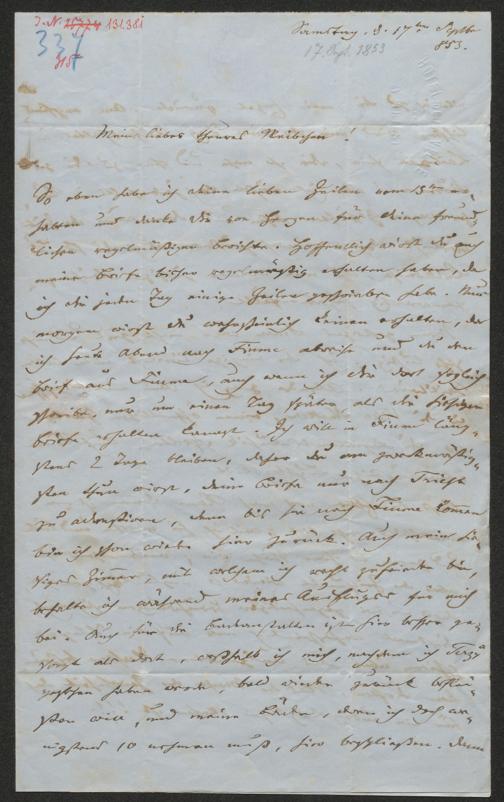 J. N. 25774 131.381
334
Samstag, d. 17ten Septbr
853.
17. Sept. 1853
Mein liebes theures Weibchen!
So eben habe ich deine lieben Zeilen vom 15ten er-
halten und danke dir von Herzen für deine freund-
lichen regelmäßigen Berichte. Hoffentlich wirst du auch
meine Briefe bisher regelmäßig erhalten haben, da
ich dir jeden Tag einige Zeilen geschrieben habe. Nur
morgen wirst du wahrscheinlich keinen erhalten, da
ich heute Abend nach Fiume abreise und du den
Brief aus Fiume, auch wenn ich dir dort sogleich
schreibe, nur um einen Tag später als die hiesigen
Briefe erhalten kannst. Ich will in Fiume läng-
stens 2 Tage bleiben, daher du am zweckmäßig-
sten thun wirst, deine Briefe nur nach Triest
zu adressiren, denn bis sie nach Fiume kommen
bin ich schon wieder hier zurück. Auch mein hie-
siges Zimmer, mit welchem ich recht zufrieden bin,
behalte ich während meines Ausfluges für mich
bei. Auch für die Badeanstalten ist hier besser ge-
sorgt als dort, weßhalb ich mich, nachdem ich
gesehen haben werde, bald wieder zurück
will, und meine Bäder, deren ich doch we-
nigstens 10 nehmen muß, hier beschließen. Denn